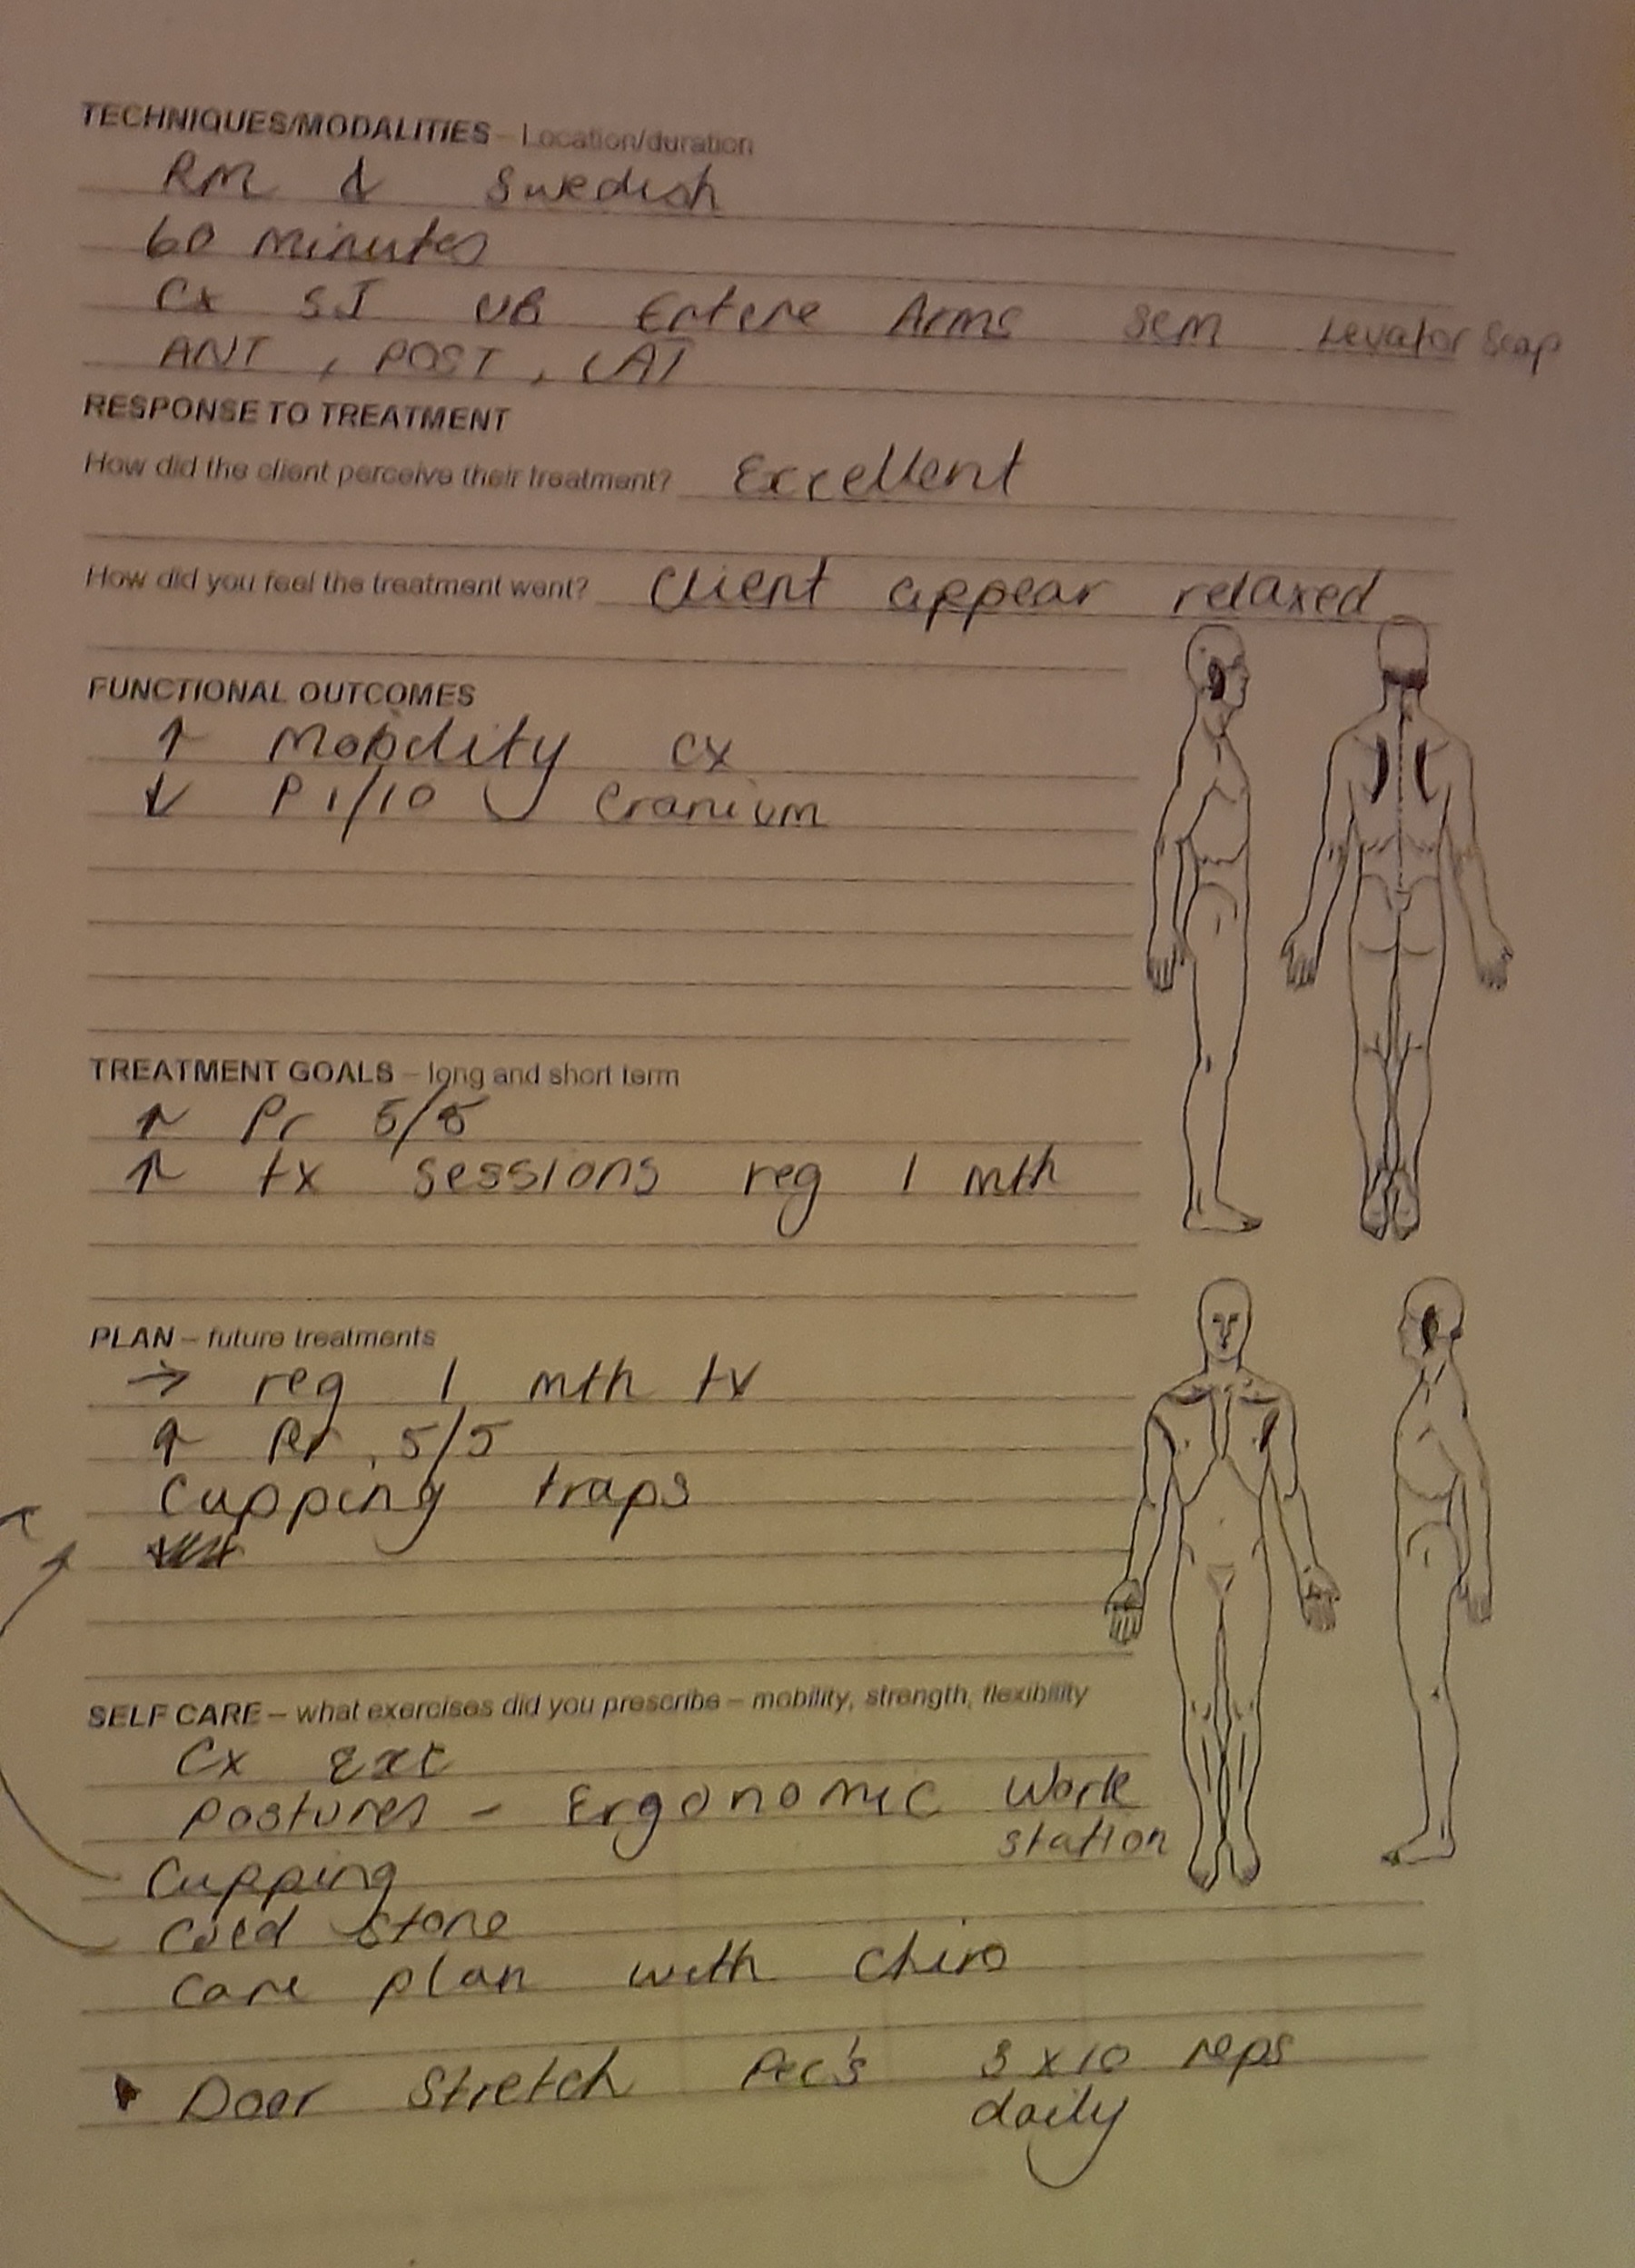 TECHNIQUES/MODALITIES – Location/duration
RM & Swedish
60 Minutes
Cx SJ UB Entire Arms SCM Levator Scap
ANT, POST, LAT
RESPONSE TO TREATMENT
How did the client perceive their treatment? Excellent
How did you feel the treatment went? Client appear relaxed
FUNCTIONAL OUTCOMES
↑ Mobility Cx
↓ P 1/10 Cranium
TREATMENT GOALS – long and short term
↑ Pr 5/5
↑ tx sessions reg 1 mth
PLAN – future treatments
→ reg 1 mth tx
↑ Pr 5/5
Cupping traps
SELF CARE – what exercises did you prescribe – mobility, strength, flexibility
Cx Ext
Postures - Ergonomic Work
station
Cupping
Cold stone
Care plan with Chiro
Door Stretch Pec's 3 x 10 reps
daily